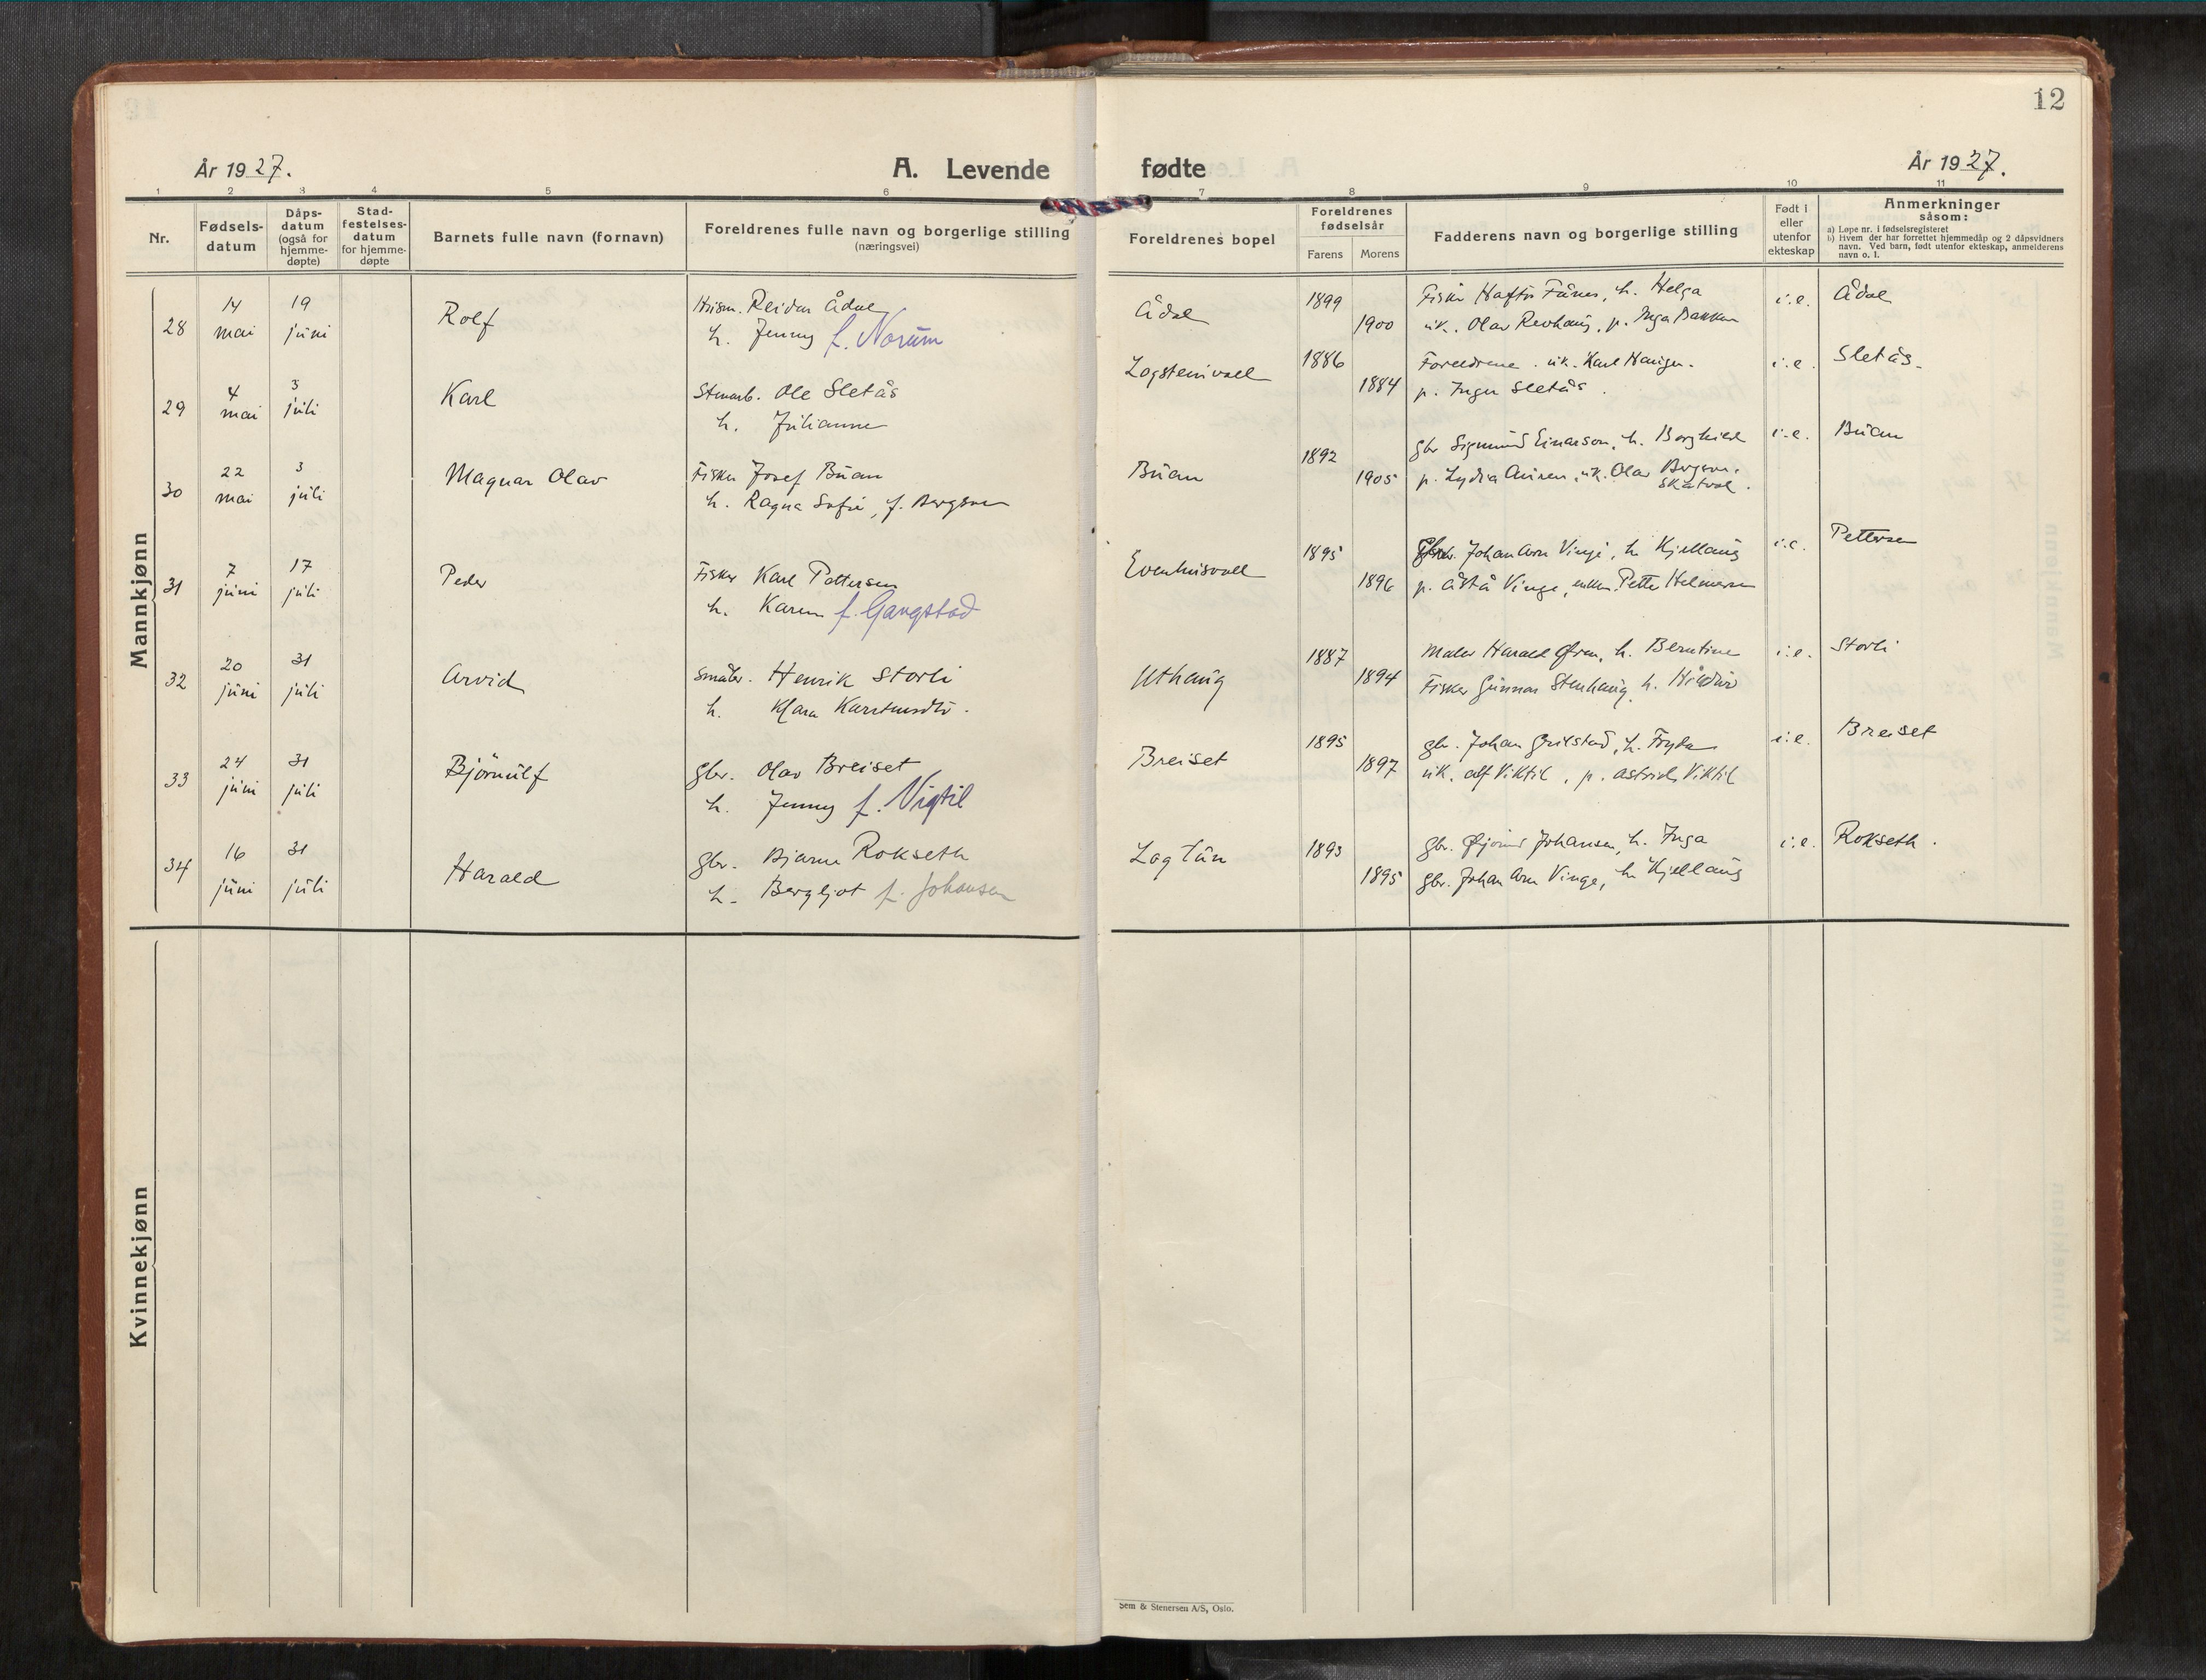 12
År 1927.
A. Levende fødte
År 1927.
1 2 3 4 5 6 7 8 9 10 11
Nr.
Fødsels-
datum
Dåps-
datum
(også for
hjemme-
døpte)
Stad-
festelses-
datum
for hjemme-
døpte
Barnets fulle navn (fornavn)
Foreldrenes fulle navn og borgerlige stilling
(næringsvei)
Foreldrenes bopel
Foreldrenes
fødselsår
Farens Morens
Fadderens navn og borgerlige stilling
Født i
eller
utenfor
ekteskap
Anmerkninger
såsom:
a) Løpe nr. i fødselsregisteret
b) Hvem der har forrettet hjemmedåp og 2 dåpsvidners
navn. Ved barn, født utenfor ekteskap, anmelderens
navn o. l.
Mannkjønn
28 14 mai 19 juni Rolf Reidar Ådal
h. Jenny f. Norum
Ådal 1899 1900
Fisker, h. Helga
uk. Olav Revhaug, p. Inga Bakken
i.e. Ådal
29 4 mai 3 juli Karl Stenarb. Ole Sletås
h. Julianne
1886 1884
Foreldrene. uk. Karl
p. Inger Sletås.
i.e. Sletås.
30 22 mai 3 juli Magnar Olav Fisker Josef Buan
h. Ragna Sofie, f. Bergsen
Buan 1892 1905
gbr Sigmund Einarson, h. Borghild
p. Lydia, uk. Olav
Skatval.
i.e. Buan
31 7 juni 17 juli Peder Fisker Karl Pettersen
h. Karen f. Gangstad
Evenhusvall 1895 1896
Johan Arn Vinge, h Kjellaug
p. Åsta Vinge, Petter Helmersen
i.e. Pettersen
32 20 juni 31 juli Arvid småbr. Henrik Storli
h. Klara Karstensdtr.
Uthaug 1887 1894
Maler Harald, h. Berntine
Fisker Gunnar Stenhaug, h.
i.e. Storli
33 24 juni 31 juli Bjørnulf gbr. Olav Breiset
h. Jenny f. Vigtil
Breiset 1895 1897
gbr. Johan Grilstad, h.
uk. Alf Viktil, p. Astrid Viktil
i.e. Breiset
34 16 juni 31 juli Harald gbr. Bjarne Rokseth
h. Bergljot f. Johansen
Lagtun 1893 1895
gbr. Johansen, h. Inga
gbr. Johan Arn Vinge, h Kjellaug
i.e. Rokseth.
Kvinnekjønn
Sem & Stenersen A/S, Oslo.